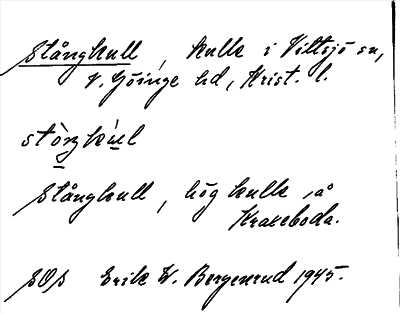 Stångkull, kulle i Vittsjö sn,
V. Göinge hd, Krist. l.
stòŋkúl
Stångkull, hög kulle å
Krakeboda.
SOS Erik W. Bergenrud 1945.